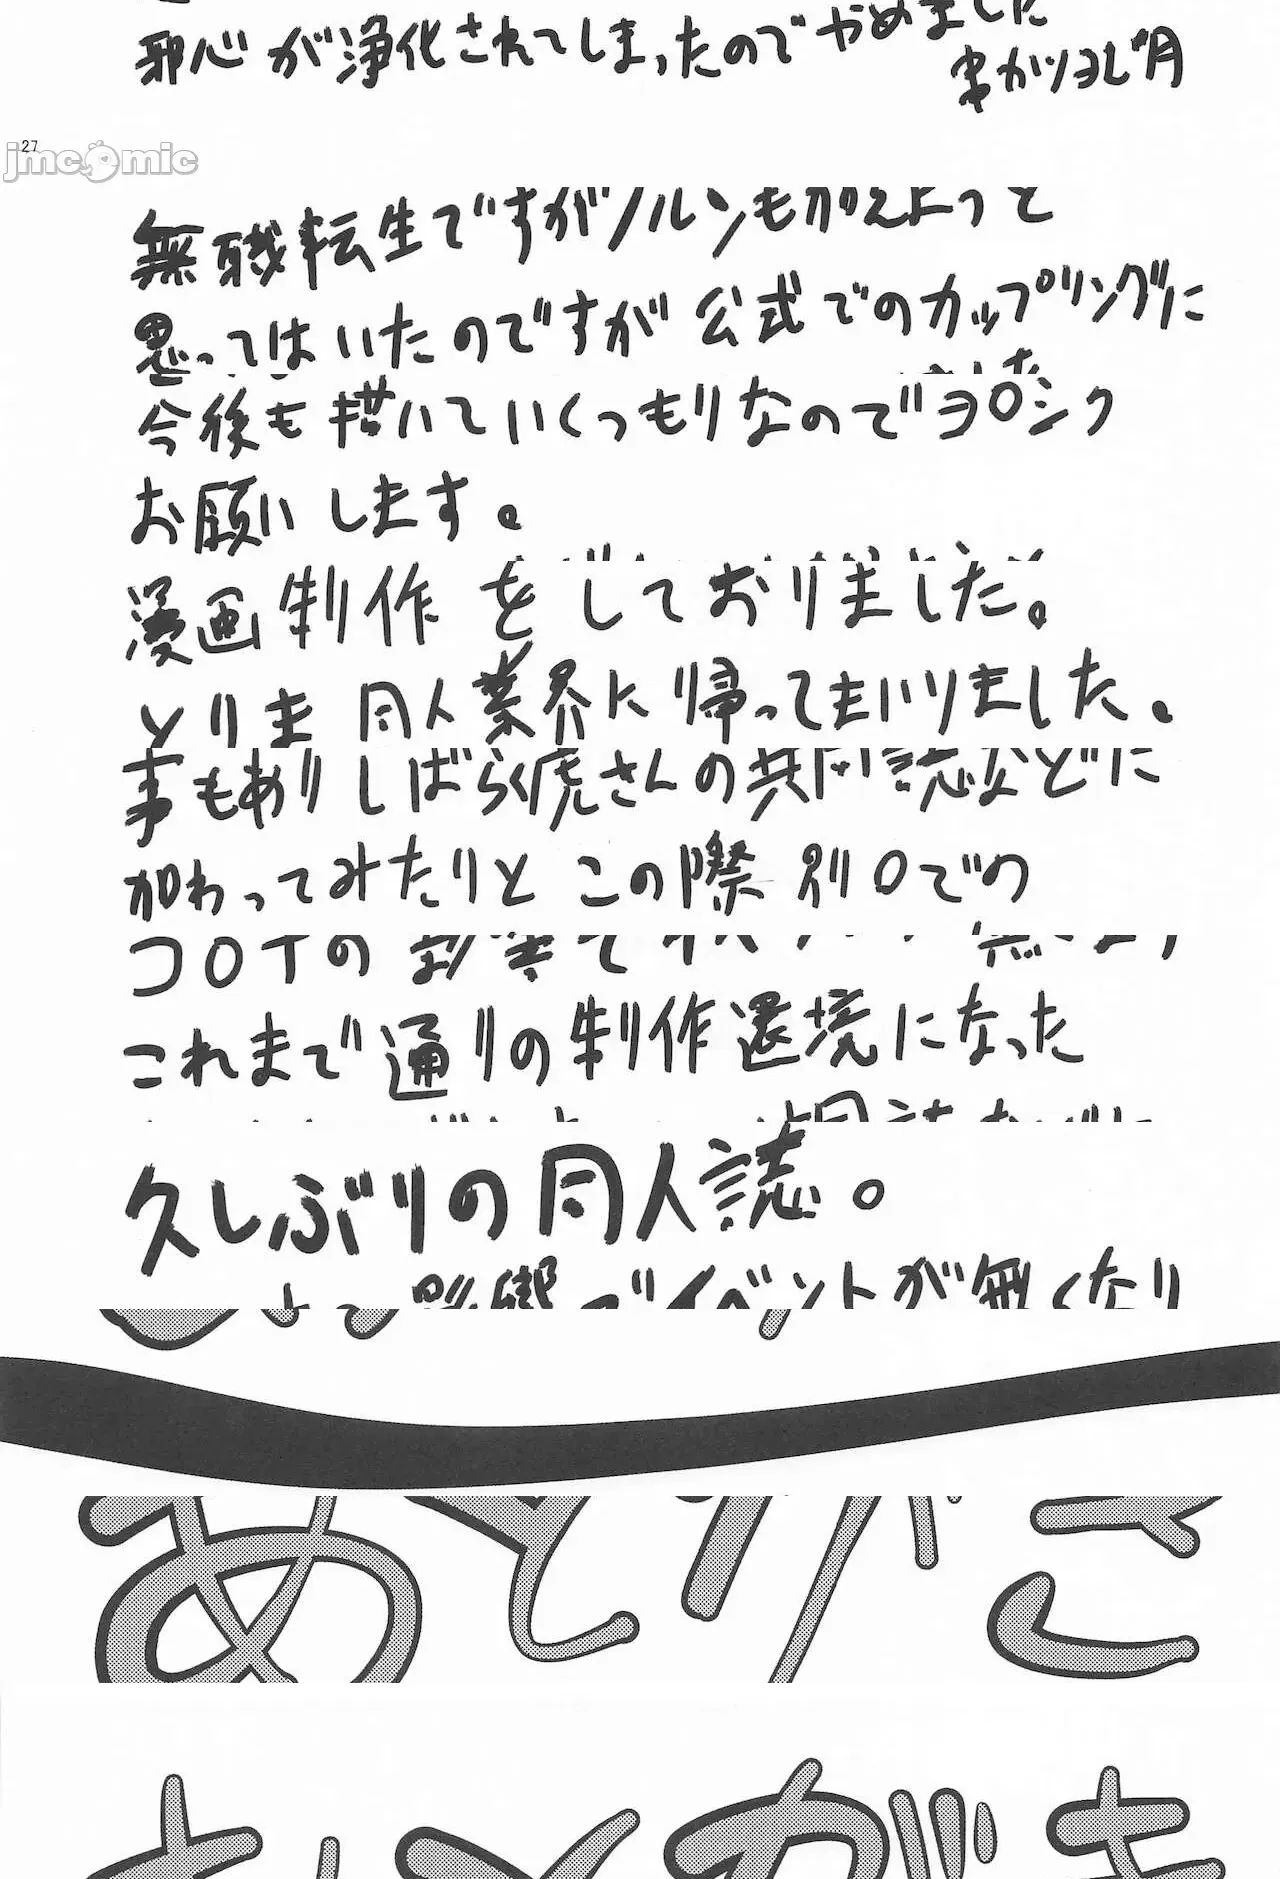 邪心が浄化されてしまったのでやめました
串かつヨしで月
27
jmcomic
無職転生ですがノルンもかえよって
思ってはいたのですが公式でのカップリングに
今後も描いていくつもりなのでヨロシク
お願いします。
漫画制作をしておりました。
とりま同人業界に帰ってまいりました。
事もありしばらく虎さんの共同誌などに
加わってみたりとこの際別口での
コロナの影響で
これまで通りの制作環境になった
久しぶりの同人誌。
影響でイベントが無くなり
あとがき
あとがき